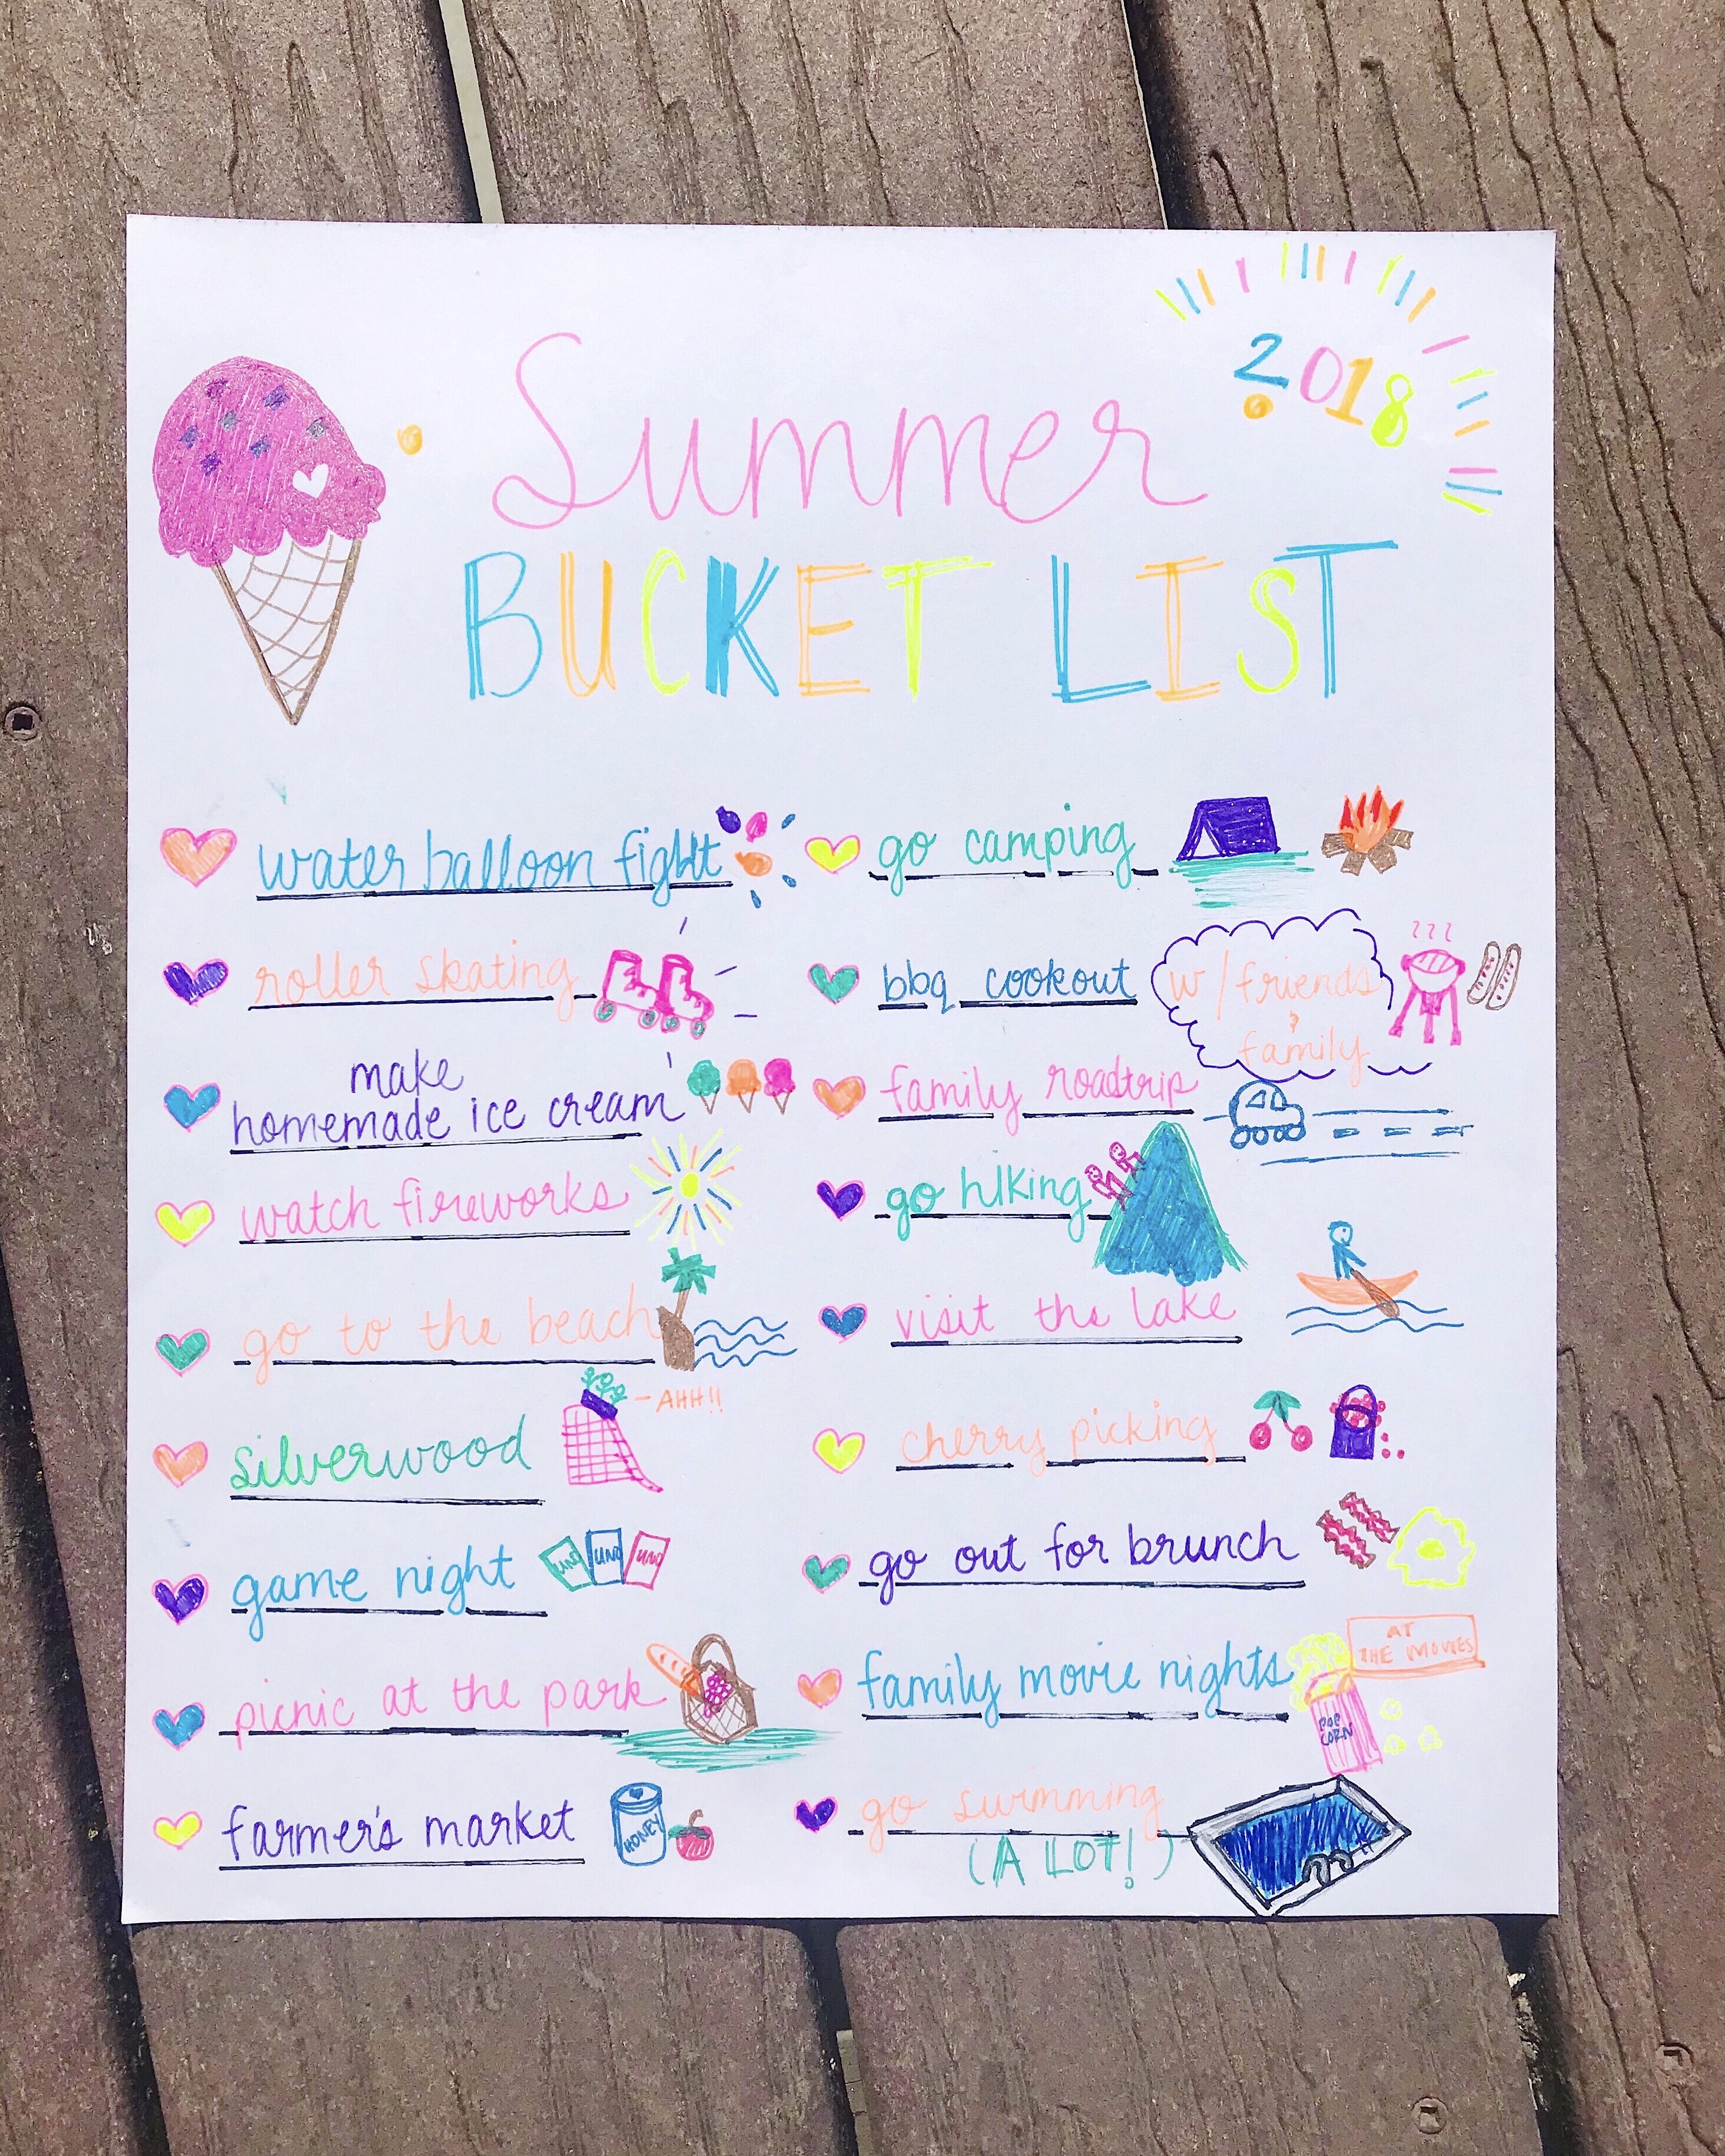 2018
Summer
BUCKET LIST
water balloon fight
roller skating
make
homemade ice cream
watch fireworks
go to the beach
- AHH!!
silverwood
game night
UNO UNO UNO
picnic at the park
farmer's market
HONEY
go camping
bbq cookout
w/friends
&
family
family roadtrip
go hIking
visit the lake
cherry picking
go out for brunch
family movie nights
AT
THE MOVIES
POP
CORN
go swimming
(A LOT!)